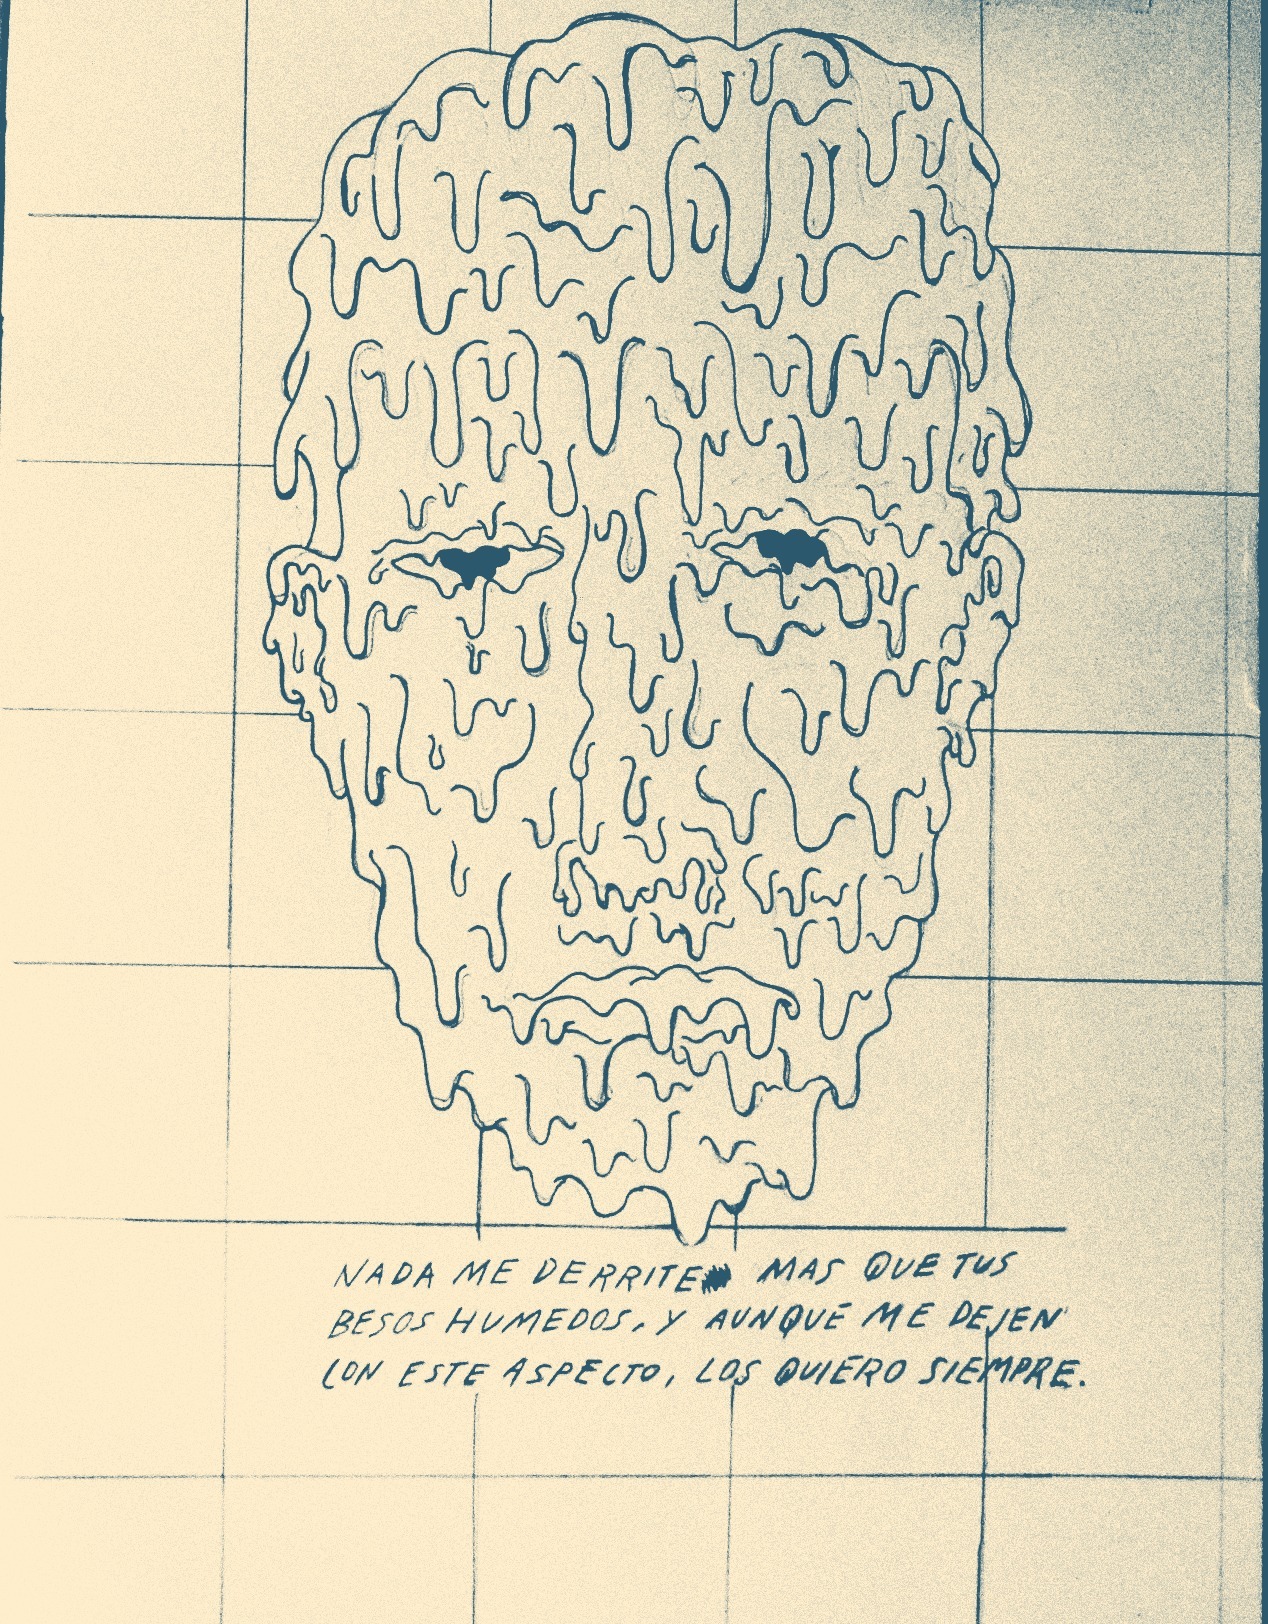 NADA ME DERRITE MAS QUE TUS
BESOS HUMEDOS, Y AUNQUE ME DEJEN
CON ESTE ASPECTO, LOS QUIERO SIEMPRE.